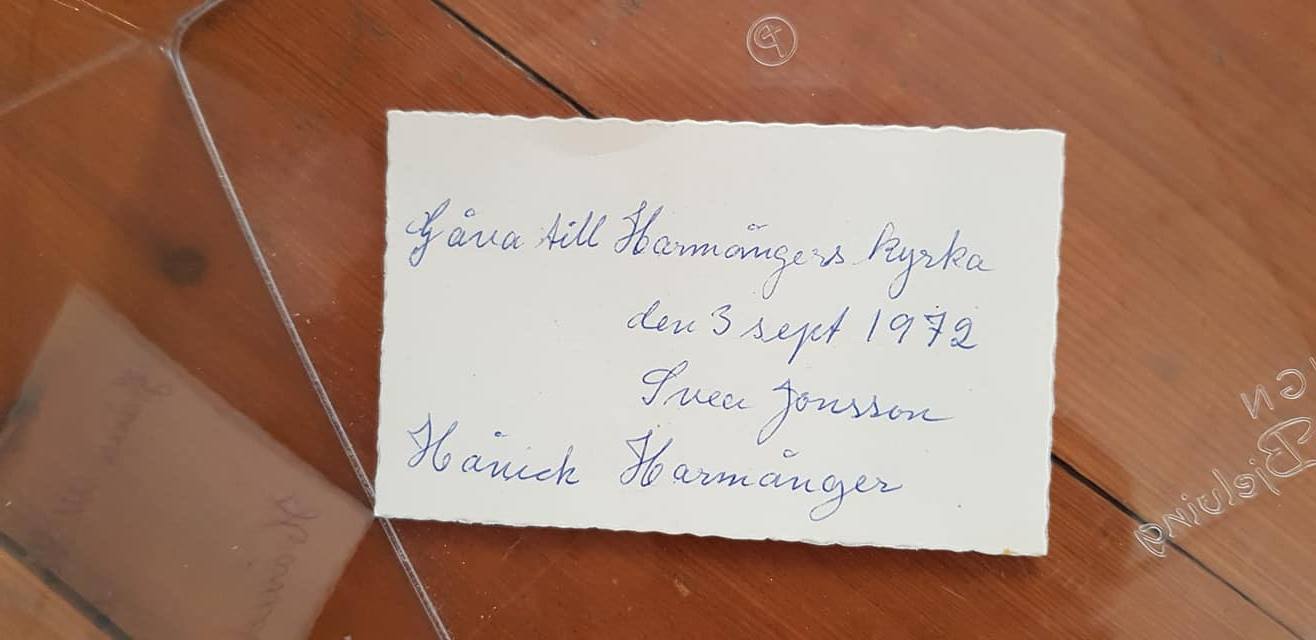 Gåva till Harmångers kyrka
den 3 sept 1972
Svea Jonsson
Hånick Harmånger